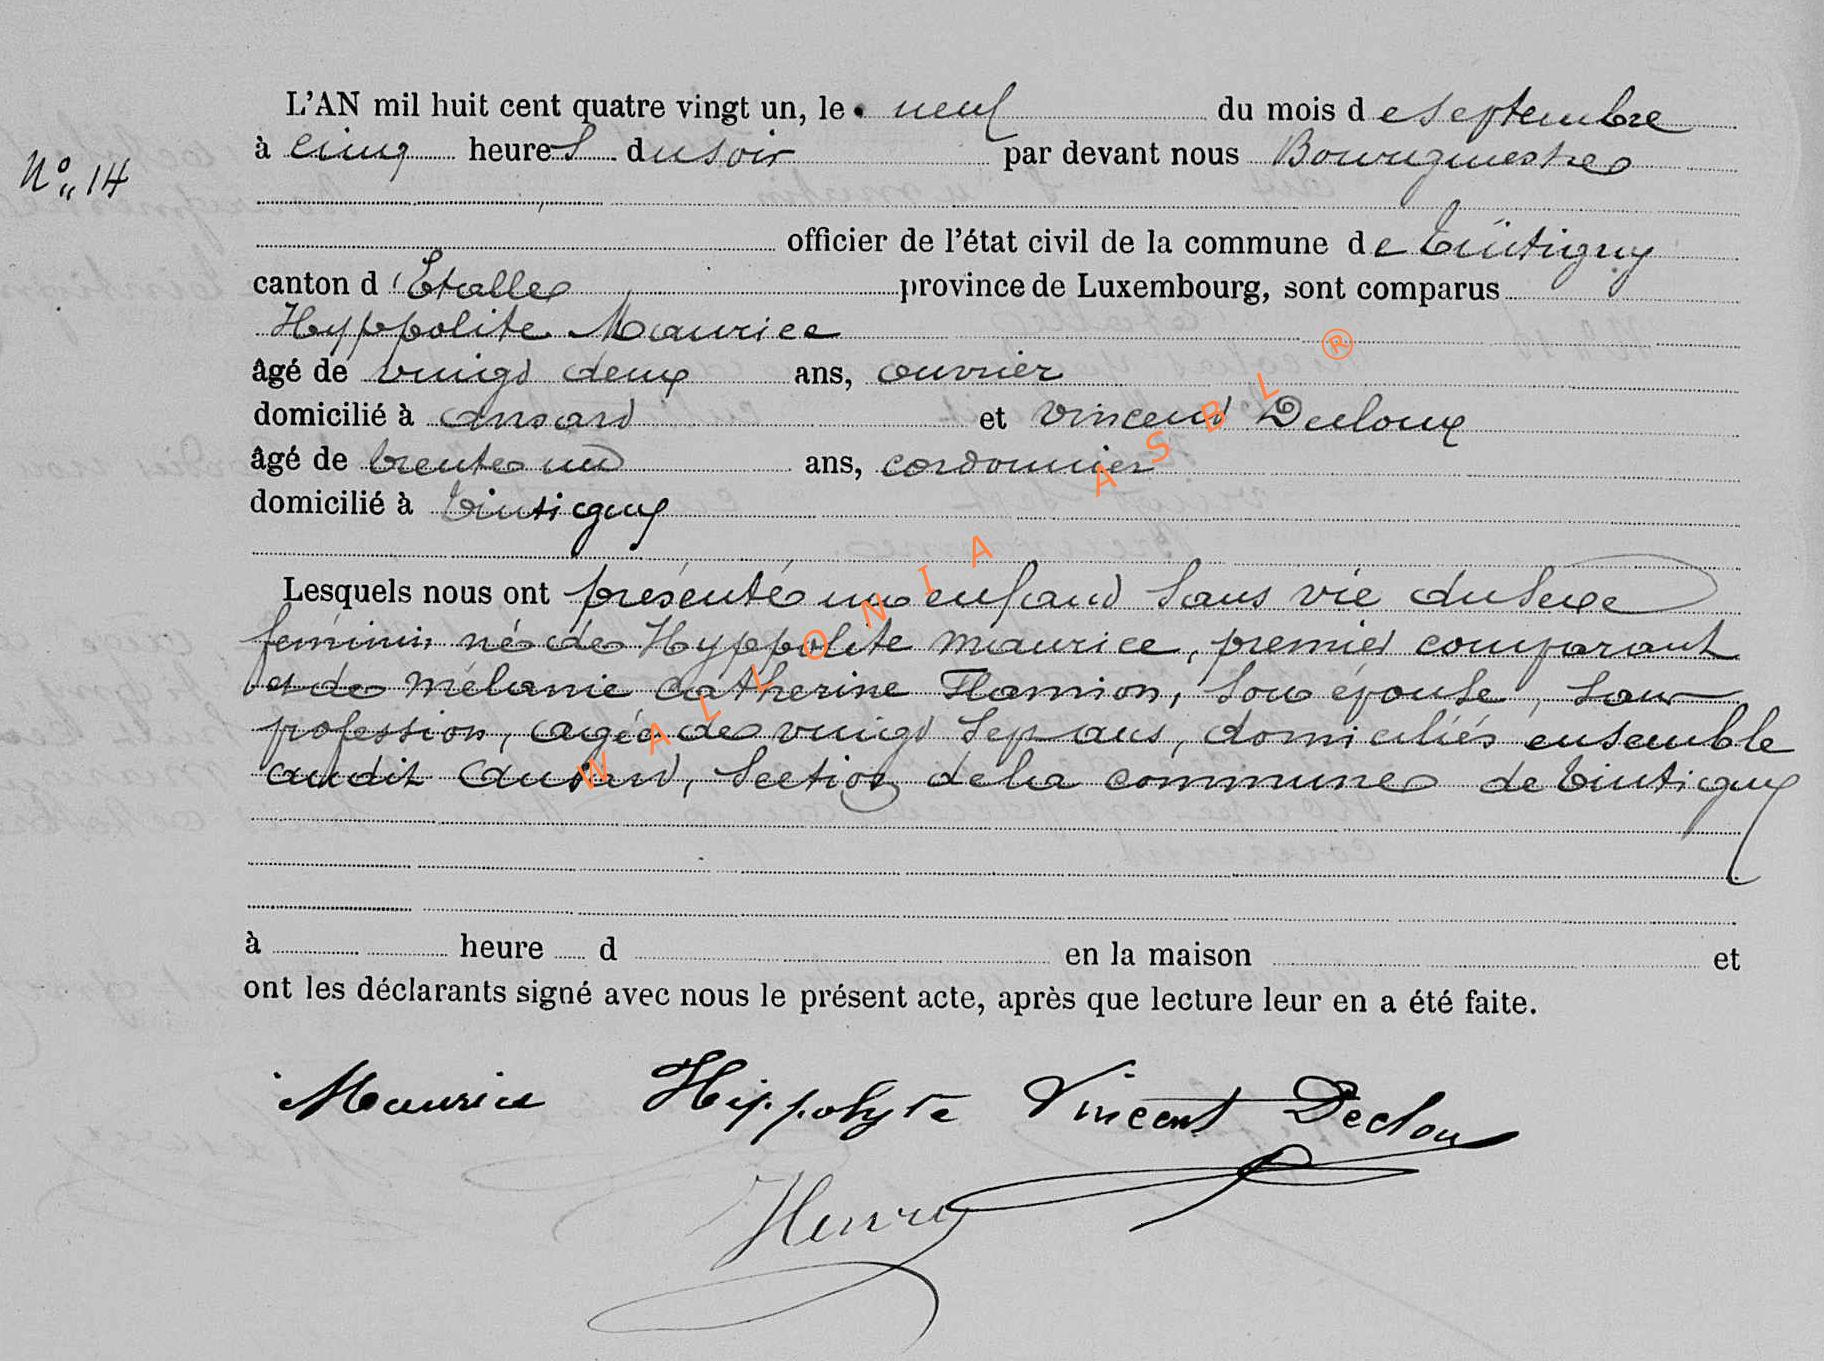 L'AN mil huit cent quatre vingt un, le neuf du mois de septembre
N° 14
à cinq heures du soir par devant nous Bourgmestre
officier de l'état civil de la commune de Tintigny
canton d'Etalle province de Luxembourg, sont comparus
Hyppolite Maurice
âgé de vingt deux ans, ouvrier
domicilié à ansard et vincent Decloux
âgé de trente un ans, cordonnier
domicilié à Tintigny
Lesquels nous ont présenté un enfant sans vie du sexe
féminin né de Hyppolite maurice, premier comparant
et de mélanie catherine Flamion, son épouse, sans
profession, agée de vingt sept ans, domiciliés ensemble
audit ansard, section de la commune de Tintigny
à heure d en la maison et
ont les déclarants signé avec nous le présent acte, après que lecture leur en a été faite.
Maurice Hippolyte Vincent Decloux
Henry
WALLONIA ASBL ®